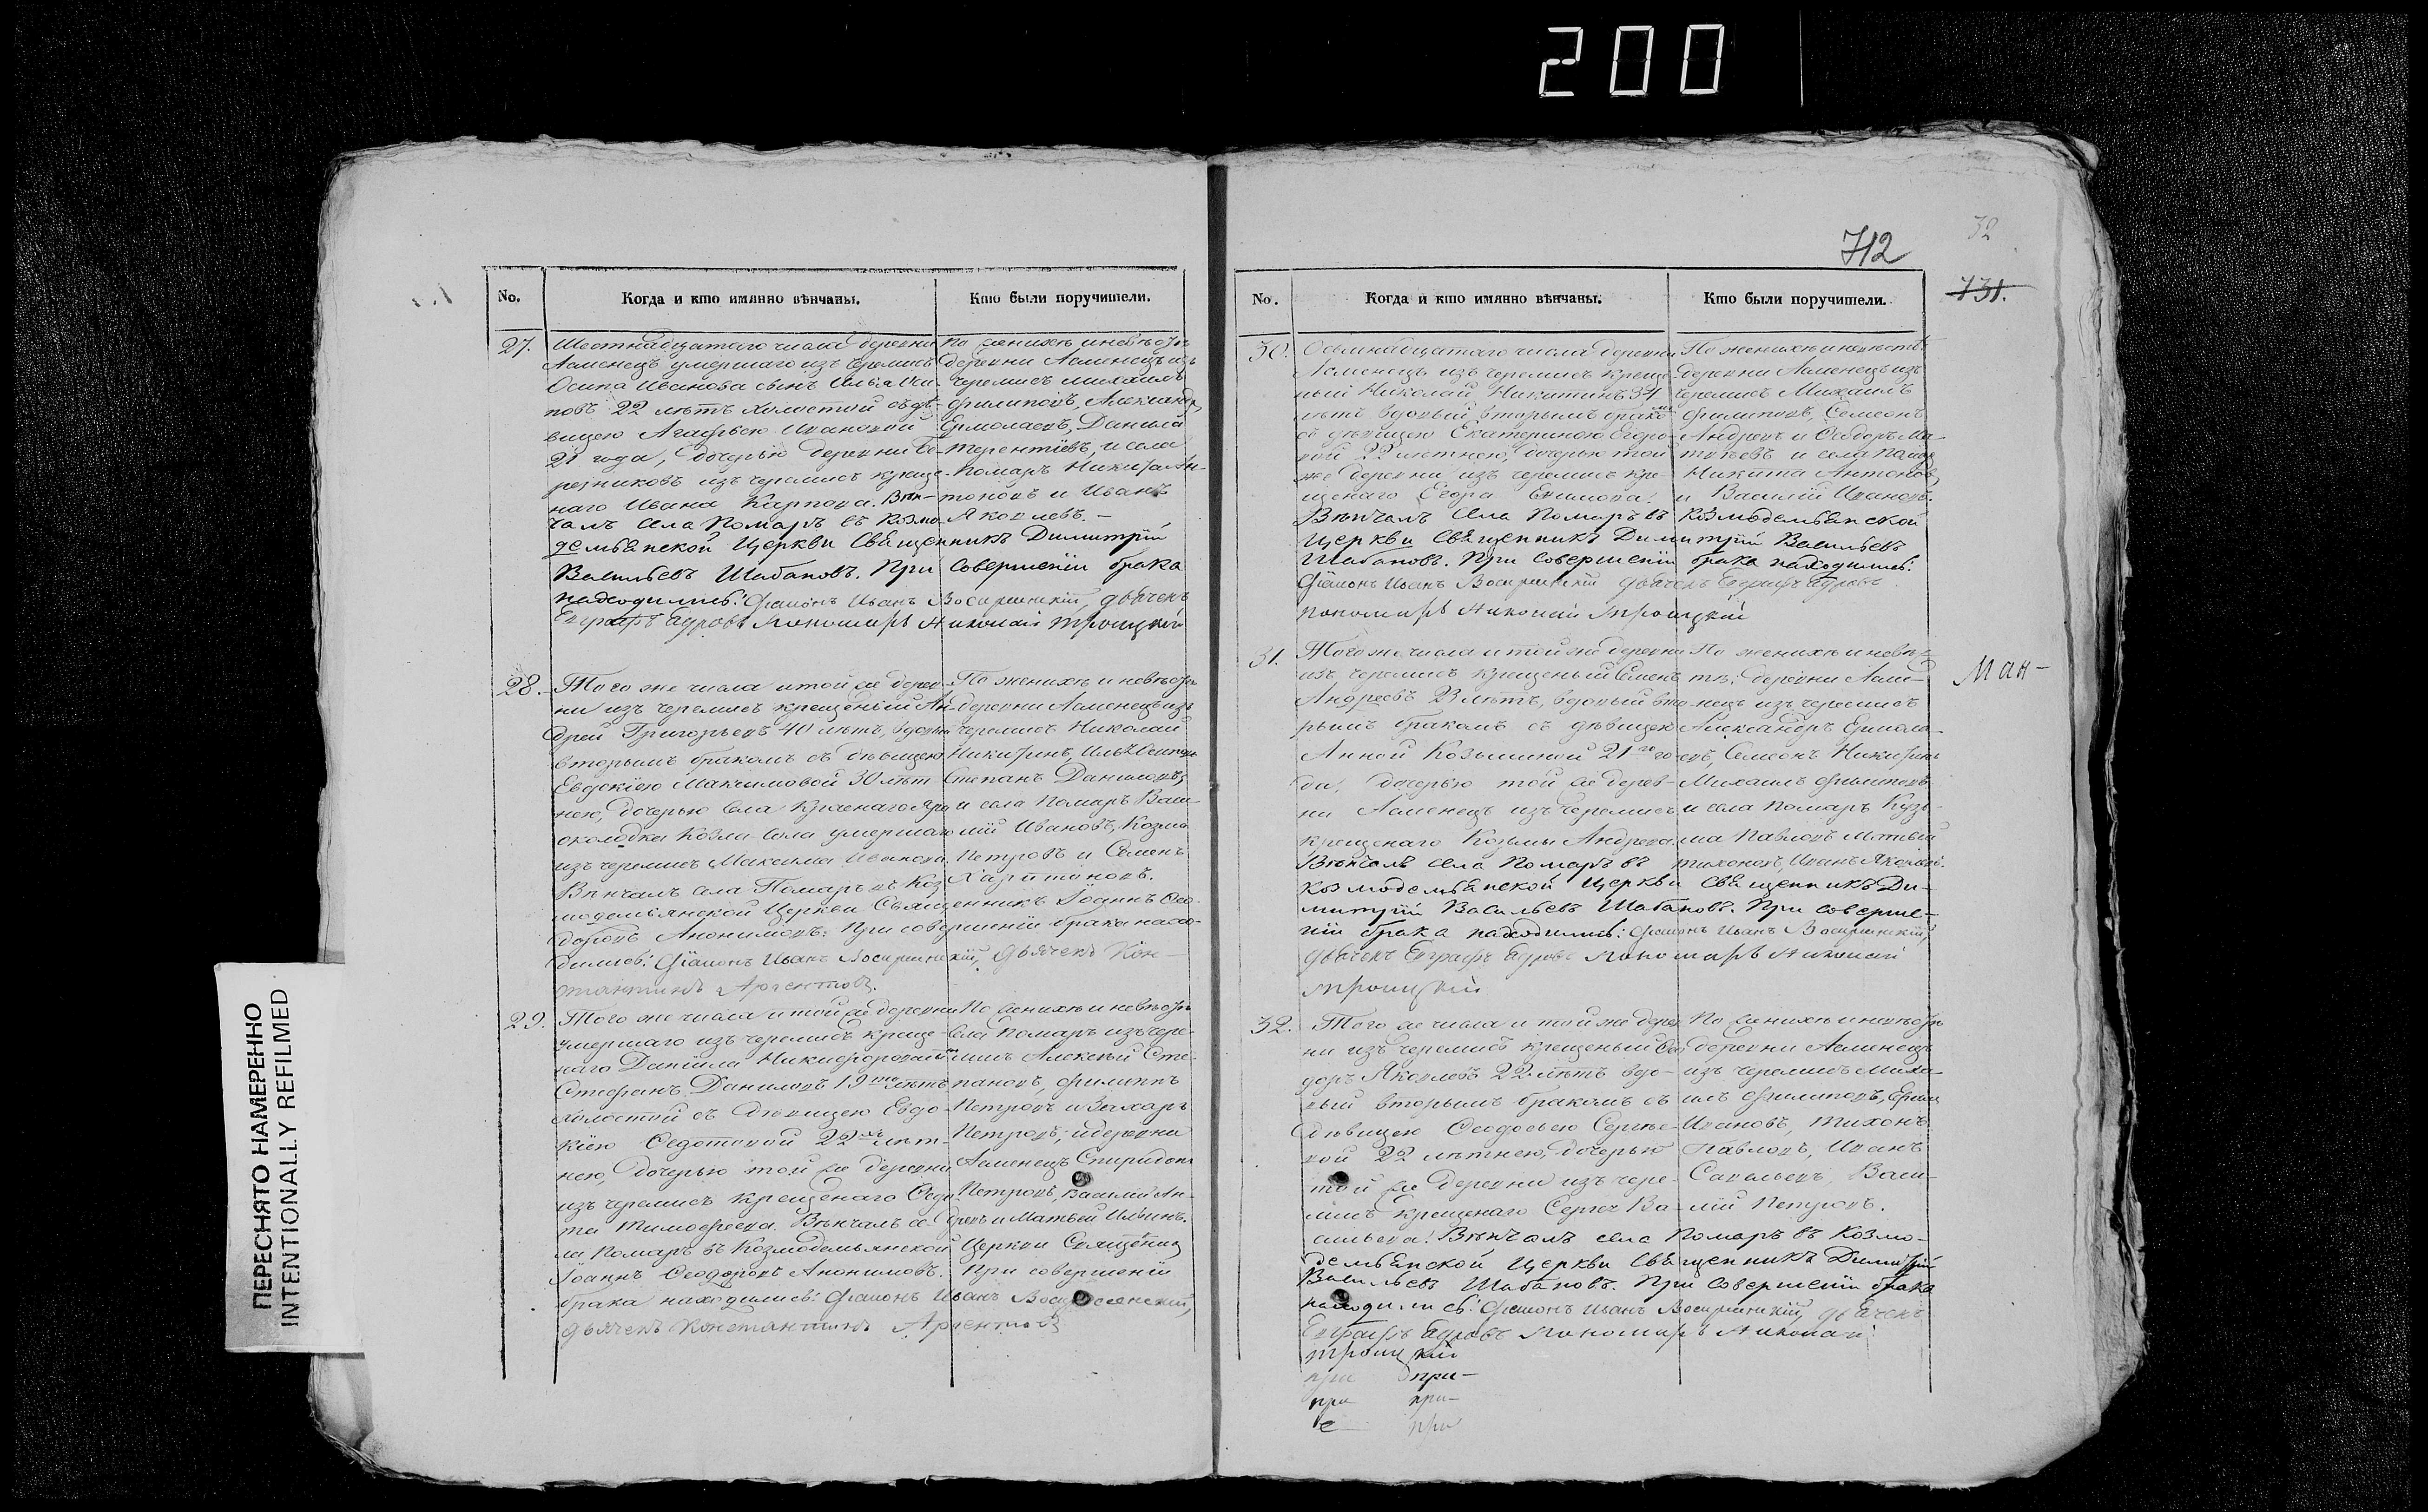 200
712
32
731.
No.
Когда и кто имянно вѣнчаны.
Кто были поручители.
27.
Шестнадцатаго числа деревни
Асменецъ умершаго изъ черемисъ
Осипа Иванова сынъ Илья Оси-
повъ 22 лѣтъ холостой съ дѣ-
вицею Агафьею Ивановой
21 года, дочерью деревни Бе-
резниковъ изъ черемисъ креще-
наго Ивана Карпова. Вѣн-
чалъ села Помаръ въ Козмо-
демьянской Церкви Священникъ Димитрій
Васильевъ Шабановъ. При совершеніи брака
находились: Діаконъ Иванъ Воскресенскій, дьячекъ
Евграфъ пономарь Николай Троицкій
По женихѣ и невѣстѣ
деревни Асменецъ изъ
черемисъ Михаилъ
Филиповъ, Александръ
Ермолаевъ, Данила
Терентіевъ, и села
Помаръ Никита Ан-
тоновъ и Иванъ
Яковлевъ.
28.
Того же числа и той же дерев-
ни изъ черемисъ крещеный Ан-
дрей Григорьевъ 40 лѣтъ, вдовый
вторымъ бракомъ съ дѣвицею
Евдокіею Максимовой 30 лѣт-
нею, дочерью села Краснаго Яра
околодка Козла-Сола умершаго
изъ черемисъ Максима Иванова.
Вѣнчалъ села Помаръ въ Коз-
модемьянской Церкви Священникъ Іоаннъ Ѳео-
доровъ Анонимовъ. При совершеніи брака нахо-
дились: Діаконъ Иванъ Воскресенскій, дьячекъ Кон-
стантинъ Аргентовъ.
По женихѣ и невѣстѣ
деревни Асменецъ изъ
черемисъ Николай
Никитинъ, Илья Осиповъ
Степанъ Даниловъ,
и села Помаръ Васи-
лій Ивановъ, Козма
Петровъ и Семенъ
Харитоновъ.
29.
Того же числа и той же деревни
умершаго изъ черемисъ креще-
наго Даніила Никифорова сынъ
Стефанъ Даниловъ 19 лѣтъ
холостой съ дѣвицею Евдо-
кіею Ѳедотовой 22 лѣт-
нею, дочерью той же деревни
изъ черемисъ крещенаго Ѳедо-
та Тимофеева. Вѣнчалъ се-
ла Помаръ въ Козмодемьянской Церкви Священникъ
Іоаннъ Ѳеодоровъ Анонимовъ. При совершеніи
брака находились: Діаконъ Иванъ Воскресенскій,
дьячекъ Константинъ Аргентовъ
По женихѣ и невѣстѣ
села Помаръ изъ чере-
мисъ Алексѣй Сте-
пановъ, Филиппъ
Петровъ и Захаръ
Петровъ, и деревни
Асменецъ Спиридонъ
Петровъ, Василій Ан-
дреевъ и Матвей Ильинъ.
No.
Когда и кто имянно вѣнчаны.
Кто были поручители.
30.
Осьмнадцатаго числа деревни
Асменецъ изъ черемисъ креще-
ный Николай Никитинъ 34
лѣтъ вдовый вторымъ бракомъ
съ дѣвицею Екатериною Егоро-
вой 22 лѣтнею, дочерью той
же деревни изъ черемисъ кре-
щенаго Егора
Вѣнчалъ села Помаръ въ Козмодемьянской
Церкви Священникъ Димитрій Васильевъ
Шабановъ. При совершеніи брака находились:
Діаконъ Иванъ Воскресенскій дьячекъ Евграфъ
пономарь Николай Троицкій
По женихѣ и невѣстѣ
деревни Асменецъ изъ
черемисъ Михаилъ
Филиповъ, Семенъ
Андреевъ и Ѳедоръ Ма-
твѣевъ и села Помаръ
Никита Антоновъ,
и Василій Ивановъ.
31.
Того же числа и той же деревни
изъ черемисъ крещеный Семенъ
Андреевъ лѣтъ, вдовый вто-
рымъ бракомъ съ дѣвицею
Анной Козьминой 21 го-
да, дочерью той же дерев-
ни Асменецъ изъ черемисъ
крещенаго Козьмы Андреева.
Вѣнчалъ села Помаръ въ
Козмодемьянской Церкви Священникъ Ди-
митрій Васильевъ Шабановъ. При соверше-
ніи брака находились: Діаконъ Иванъ Воскресенскій,
дьячекъ Евграфъ пономарь Николай
Троицкій
По женихѣ и невѣс-
тѣ: деревни Асме-
нецъ изъ черемисъ
Александръ Ермола-
евъ, Семенъ Никитинъ
Михаилъ Филиповъ
и села Помаръ Кузь-
ма Павловъ Матвѣй
Тихоновъ, Иванъ Яковлевъ.
Ман-
32.
Того же числа и той же дерев-
ни изъ черемисъ крещеный Ѳео-
доръ Яковлевъ 22 лѣтъ вдо-
вый вторымъ бракомъ съ
дѣвицею Ѳеодосьею Сергѣе-
вой 22 лѣтнею, дочерью
той же деревни изъ чере-
мисъ крещенаго Сергѣя Ва-
сильева. Вѣнчалъ села Помаръ въ Козмо-
демьянской Церкви Священникъ Димитрій
Васильевъ Шабановъ. При совершеніи брака
находились: Діаконъ Иванъ Воскресенскій, дьячекъ
Евграфъ пономарь Николай
Троицкій
По женихѣ и невѣстѣ
деревни Асменецъ
изъ черемисъ Миха-
илъ Филиповъ,
Ивановъ, Тихонъ
Павловъ, Иванъ
Савельевъ, Васи-
лій Петровъ.
при при-
при при-
е при
ПЕРЕСНЯТО НАМЕРЕННО
INTENTIONALLY REFILMED